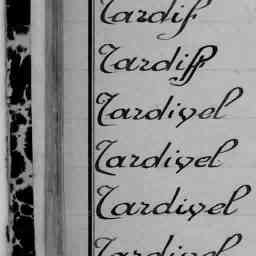 Tardif
Tardiff
Tardivel
Tardivel
Tardivel
Tardivel